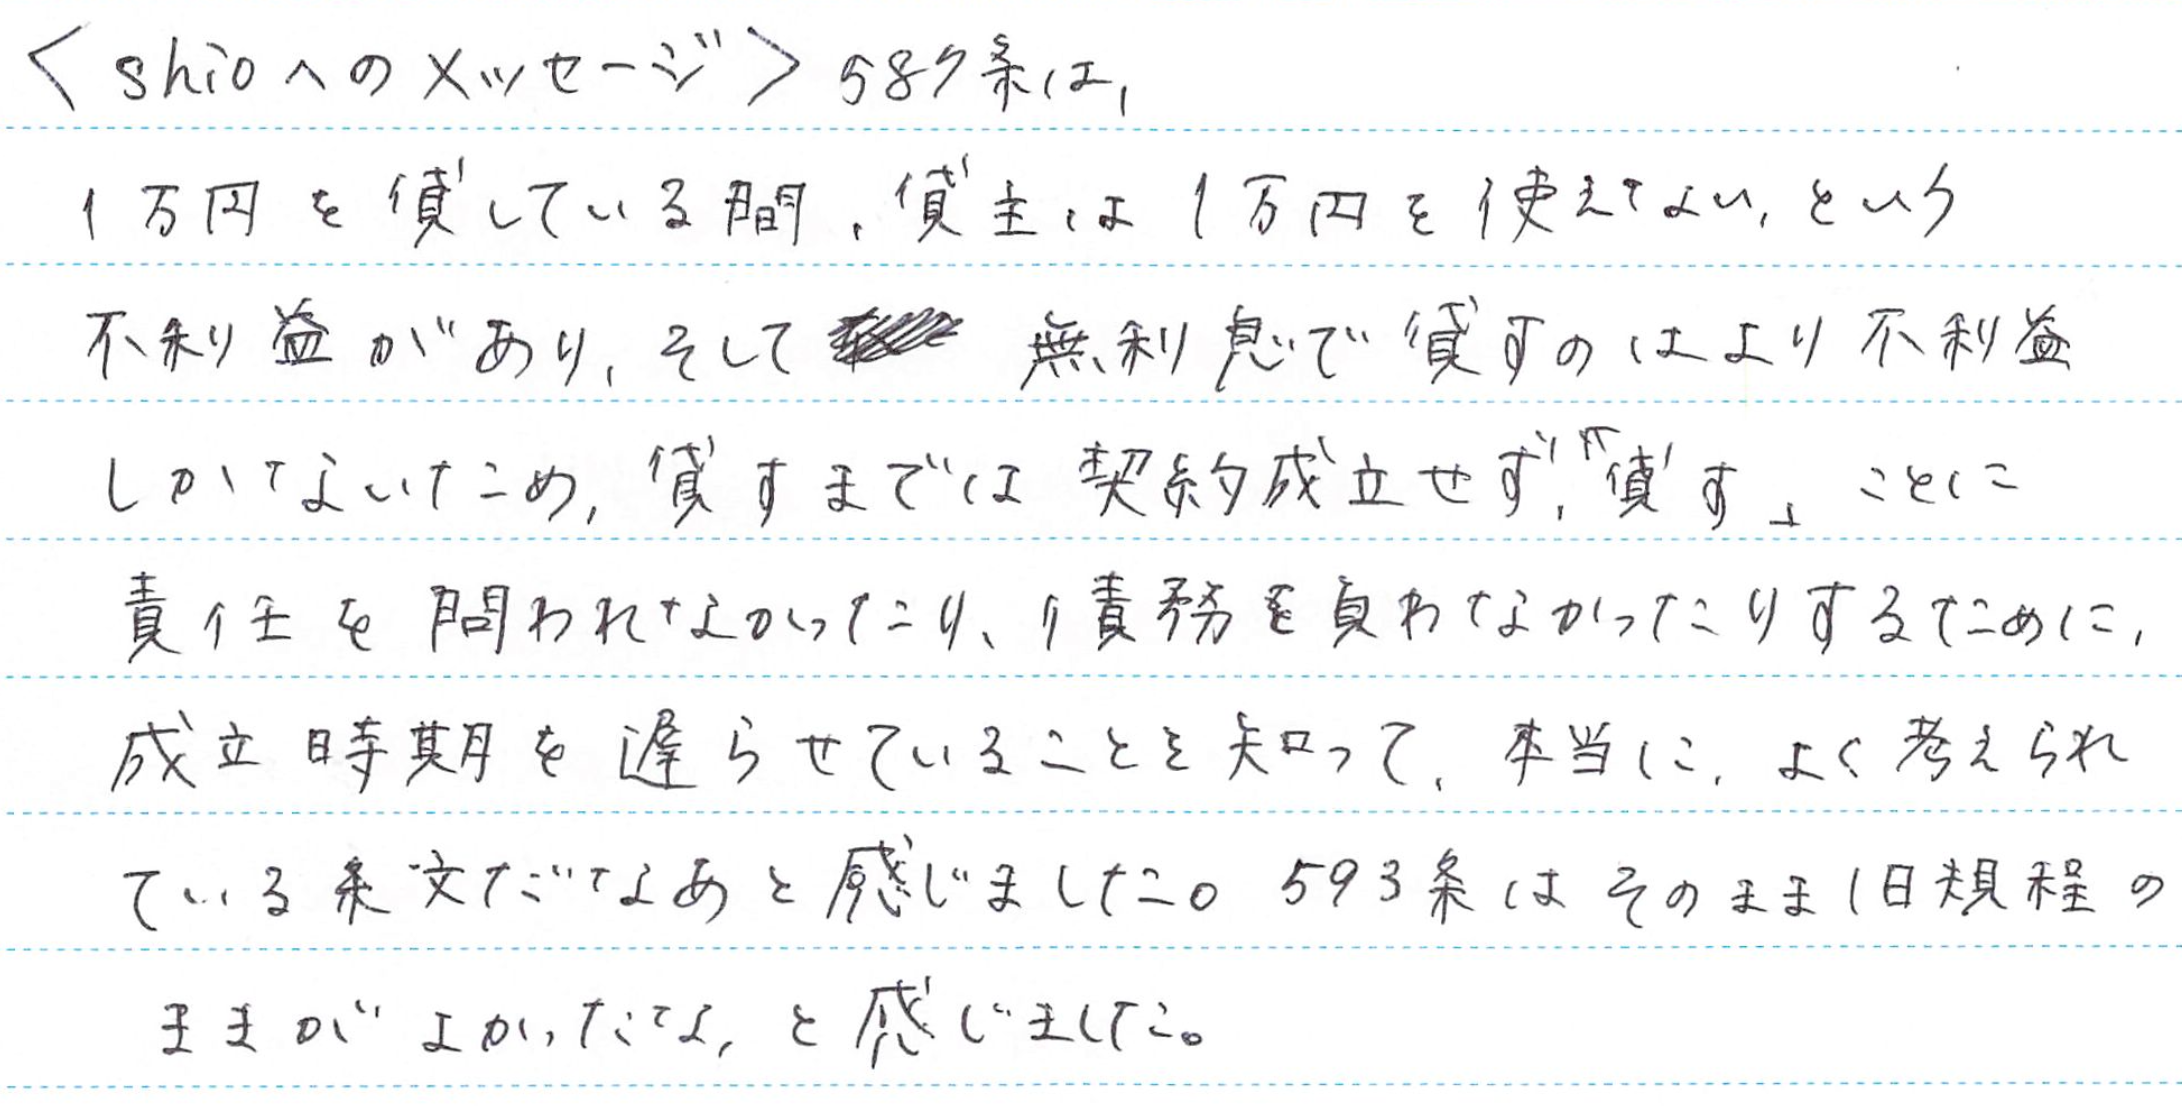 ＜shioへのメッセージ＞587条は,
1万円を貸している間,貸主は1万円を使えない,という
不利益があり,そして 無利息で貸すのはより不利益
しかないため,貸すまでは契約成立せず,「貸す」ことに
責任を問われなかったり、債務を負わなかったりするために,
成立時期を遅らせていることを知って,本当に,よく考えられ
ている条文だなあと感じました。593条はそのまま旧規程の
ままがよかったな,と感じました。